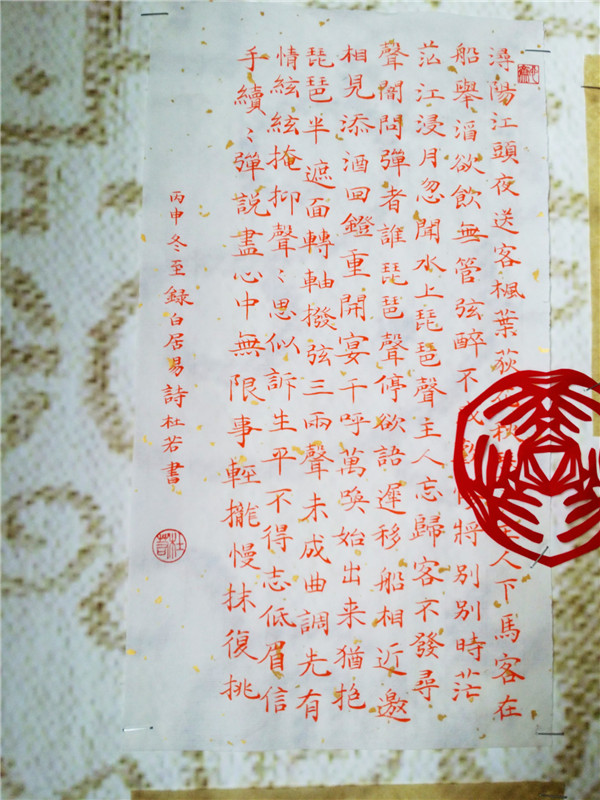 潯陽江頭夜送客楓葉荻秋人下馬客在
船舉酒欲飲無管弦醉不將別別時茫
茫江浸月忽聞水上琵琶聲主人忘歸客不發尋
聲闇問彈者誰琵琶聲停欲語遲移船相近邀
相見添酒回鐙重開宴千呼萬喚始出来猶抱
琵琶半遮面轉軸撥弦三兩聲未成曲調先有
情絃絃掩抑聲〻思似訴生平不得志低眉信
手續〻彈説盡心中無限事輕攏慢抹復挑
丙申冬至録白居易詩杜若書
杜若